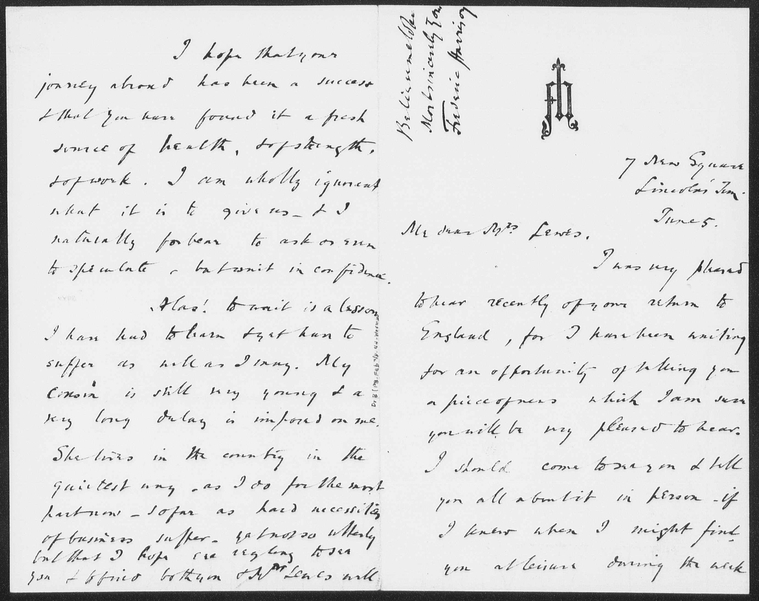 7 New Square
Lincoln's Inn.
June 5.
My dear Mrs Lewes.
I was very pleased
to hear recently of your return to
England, for I have been waiting
for an opportunity of telling you
a piece of news which I am sure
you will be very pleased to hear.
I should come to see you & tell
you all about it in person - if
I knew when I might find
you at leisure during the week
I hope that your
journey abroad has been a success
& that you have found it a fresh
source of health, & of strength,
& of work. I am wholly ignorant
what it is to give us - & I
naturally forbear to ask or even
to speculate - but wait in confidence.
Alas! to wait is a lesson
I have had to learn & yet have to
suffer as well as I may. My
cousin is still very young & a
very long delay is imposed on me.
She lives in the country in the
quietest way - as I do for the most
part now - so far as hard necessities
of business suffer - yet not so utterly
but that I hope ere very long to see
you & to find both you & Mr Lewes well
Believe me to be
Most sincerely Yours
Frederic Harrison